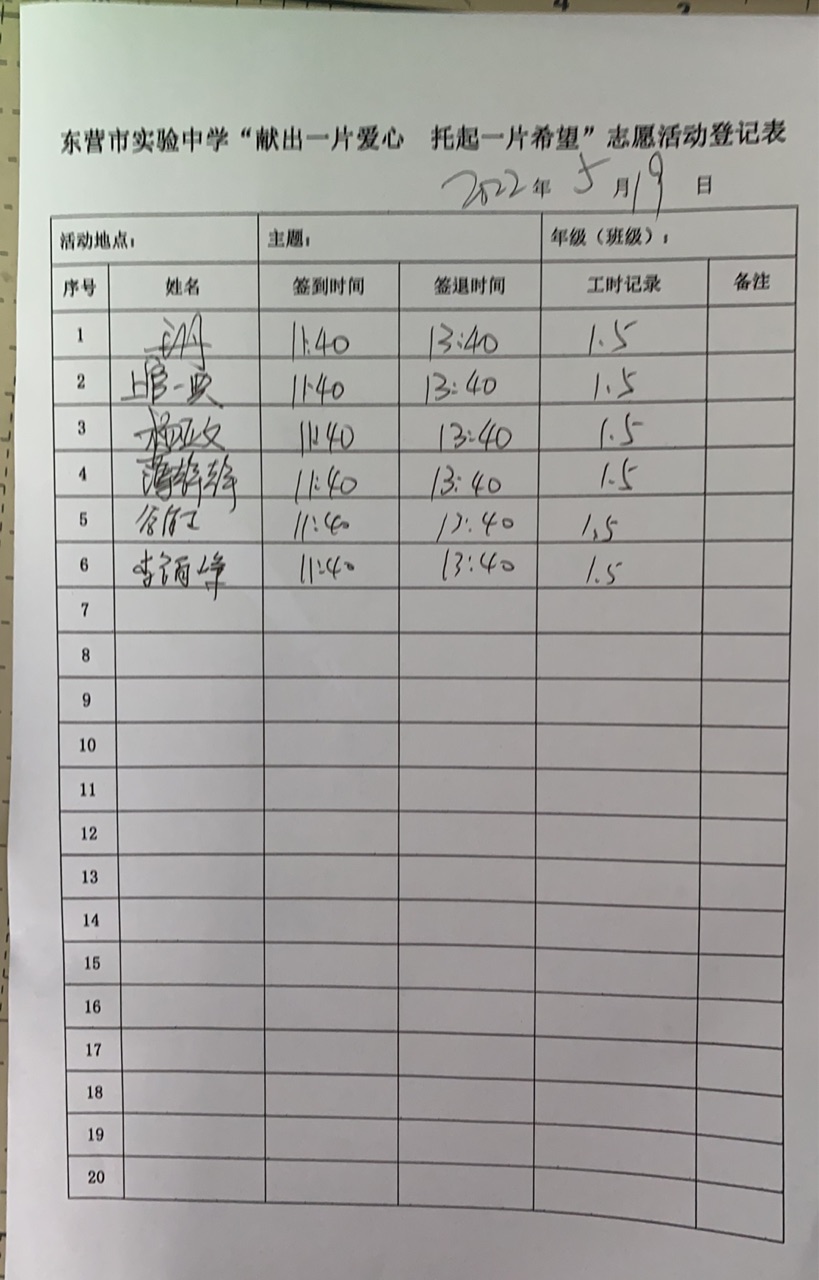 东营市实验中学“献出一片爱心 托起一片希望”志愿活动登记表
2022年5月19日
活动地点： 主题： 年级（班级）：
序号 姓名 签到时间 签退时间 工时记录 备注
1 11:40 13:40 1.5
2 上官一 11:40 13:40 1.5
3 杨亚文 11:40 13:40 1.5
4 11:40 13:40 1.5
5 11:40 13:40 1.5
6 11:40 13:40 1.5
7
8
9
10
11
12
13
14
15
16
17
18
19
20